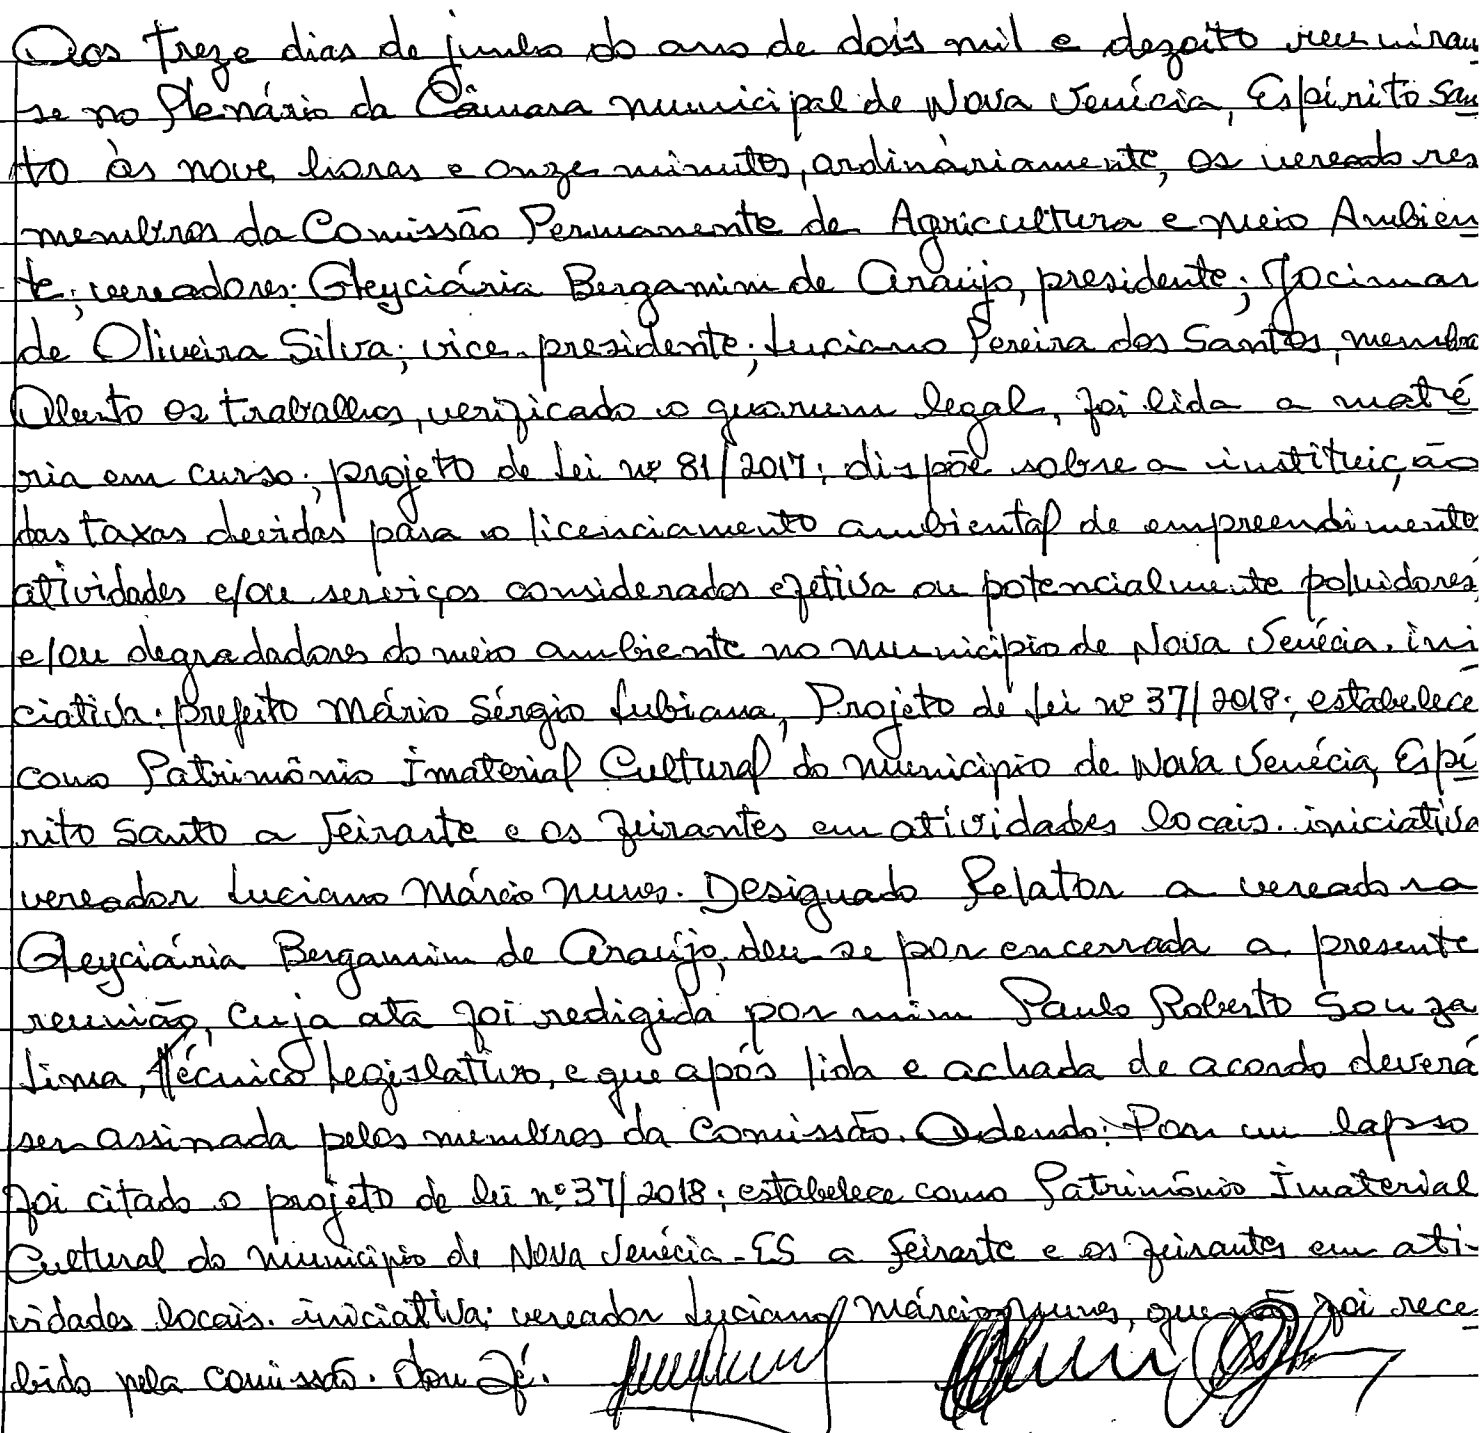 Aos treze dias de junho do ano de dois mil e dezoito reuniram
se no Plenário da Câmara municipal de Nova Venécia, Espírito San
to às nove horas e onze minutos, ordináriamente, os vereadores
membros da Comissão Permanente de Agricultura e meio Ambien
te; vereadores: Gleyciária Bergamim de Araújo, presidente; Jocimar
de Oliveira Silva; vice-presidente; Luciano Pereira dos Santos, membro
Aberto os trabalhos, verificado o quorum legal, foi lida a maté
ria em curso; projeto de Lei nº 81/2017; dispõe sobre a instituição
das taxas devidas para o licenciamento ambiental de empreendimento
atividades e/ou serviços considerados efetiva ou potencialmente poluidores
e/ou degradadores do meio ambiente no município de Nova Venécia. ini
ciativa: prefeito Mário Sérgio Lubiana, Projeto de Lei nº 37/2018; estabelece
como Patrimônio Imaterial Cultural do município de Nova Venécia, Espí
rito Santo a Feirarte e os feirantes em atividades locais. iniciativa
vereador Luciano Márcio Nunes. Designado Relator a vereadora
Gleyciária Bergamim de Araújo, deu se por encerrada a presente
reunião, cuja ata foi redigida por mim Paulo Roberto Souza
Lima, Técnico Legislativo, e que após lida e achada de acordo deverá
ser assinada pelos membros da Comissão. Adendo: Por um lapso
foi citado o projeto de lei nº 37/2018; estabelece como Patrimônio Imaterial
Cultural do município de Nova Venécia-ES a Feirarte e os feirantes em ati-
vidades locais. iniciativa; vereador Luciano Márcio Nunes, que não foi rece
bido pela comissão. Dou Fé.